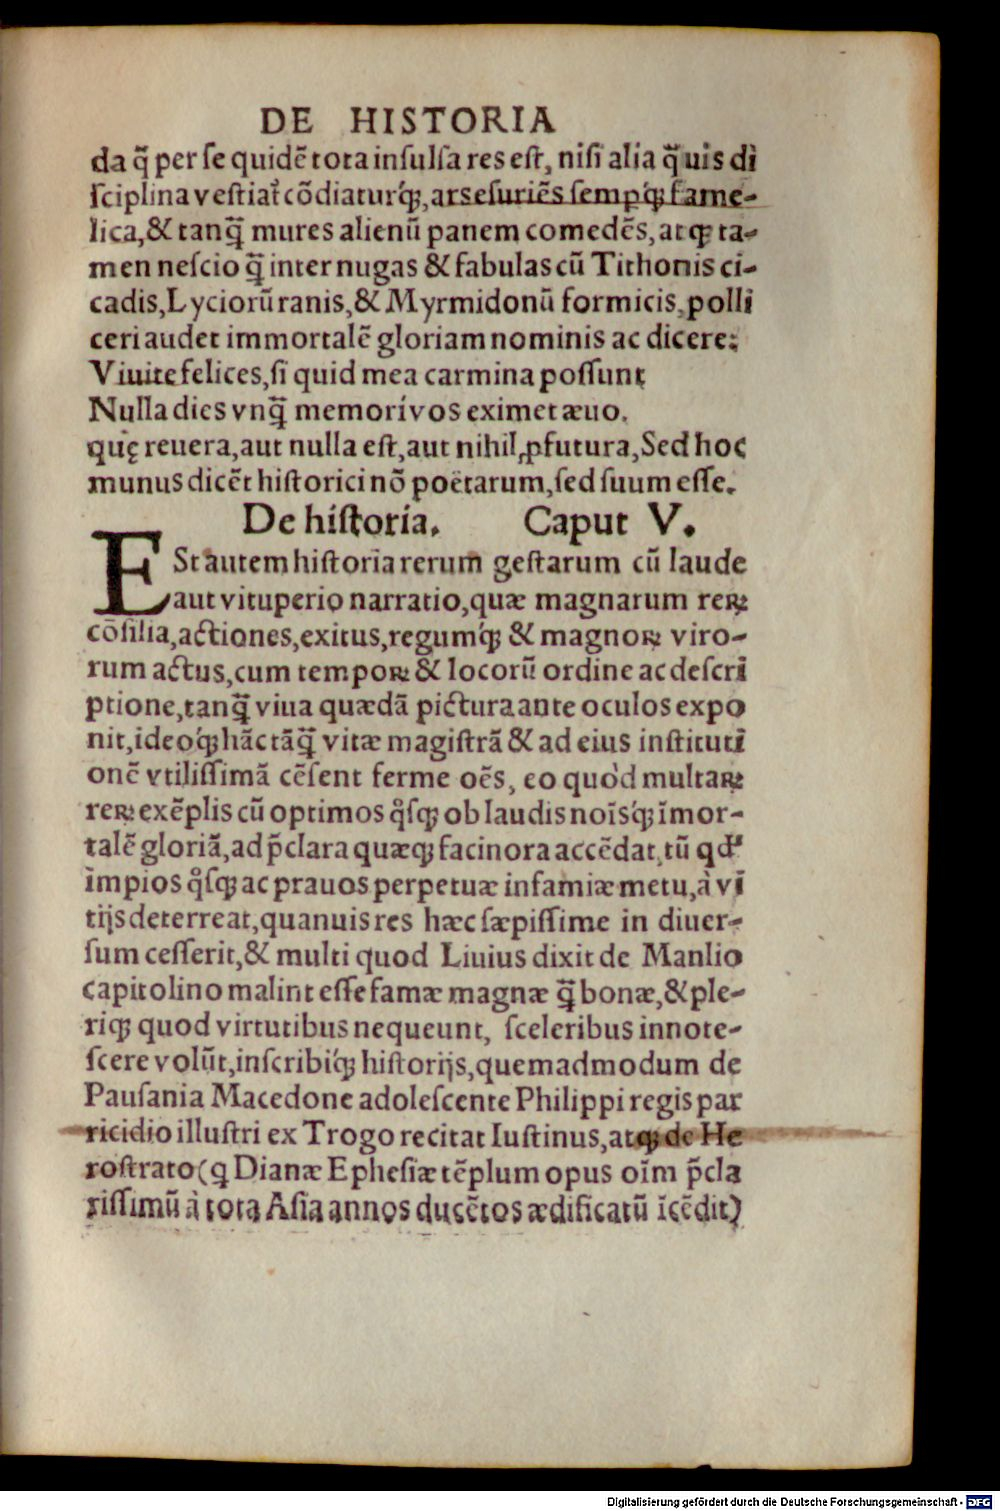 DE HISTORIA
da q̃ per se quidẽ tota insulsa res est, nisi alia q̃uis di
sciplina vestiat̃ cõdiaturq́ꝫ, ars esuriẽs semꝑq́ꝫ fame-
lica, & tanq̃ mures alienũ panem comedẽs, atqꝫ ta-
men nescio q̃ inter nugas & fabulas cũ Tithonis ci-
cadis, Lyciorũ ranis, & Myrmidonũ formicis, polli
ceri audet immortalẽ gloriam nominis ac dicere:
Viuite felices, si quid mea carmina possunt
Nulla dies vnq̃ memori vos eximet æuo.
quę reuera, aut nulla est, aut nihil ꝓfutura, Sed hoc
munus dicẽt historici nõ poëtarum, sed suum esse.
De historia. Caput V.
ESt autem historia rerum gestarum cũ laude
aut vituperio narratio, quæ magnarum reꝝ
cõsilia, actiones, exitus, regumq́ꝫ & magnoꝝ viro-
rum actus, cum tempoꝝ & locorũ ordine ac descri
ptione, tanq̃ viua quædã pictura ante oculos expo
nit, ideoq́ꝫ hãc tãq̃ vitæ magistrã & ad eius instituti
onẽ vtilissimã cẽsent ferme oẽs, eo quòd multaꝝ
reꝝ exẽplis cũ optimos qͥsqꝫ ob laudis noĩsq́ꝫ ĩmor-
talẽ gloriã, ad p̃clara quæqꝫ facinora accẽdat, tũ qđ
impios qͥsqꝫ ac prauos perpetuæ infamiæ metu, à vi
tijs deterreat, quanuis res hæc sæpissime in diuer-
sum cesserit, & multi quod Liuius dixit de Manlio
capitolino malint esse famæ magnæ q̃ bonæ, & ple-
riqꝫ quod virtutibus nequeunt, sceleribus innote-
scere volũt, inscribiq́ꝫ historijs, quemadmodum de
Pausania Macedone adolescente Philippi regis par
ricidio illustri ex Trogo recitat Iustinus, atqꝫ de He
rostrato (q Dianæ Ephesiæ tẽplum opus oĩm p̃cla
rissimũ à tota Asia annos ducẽtos ædificatũ ĩcẽdit)
Digitalisierung gefördert durch die Deutsche Forschungsgemeinschaft - DFG